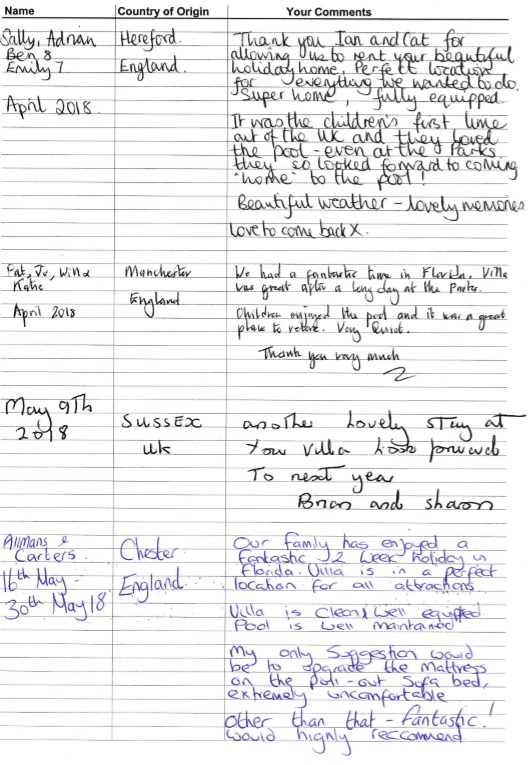 Name Country of Origin Your Comments
Sally, Adrian Hereford. Thank you Ian and Cat for
Ben 8 allowing us to rent your beautiful
Emily 7 England. holiday home, Perfect location
for everything we wanted to do.
April 2018. Super home, fully equipped.
It was the children's first time
out of the UK and they loved
the pool - even at the Parks
they so looked forward to coming
"home" to the pool!
Beautiful weather - lovely memories
Love to come back X.
Pat, Jo, Will & Manchester We had a fantastic time in Florida. Villa
Katie was great after a long day at the Parks.
England
April 2018 Children enjoyed the pool and it was a great
place to retire. Very Quiet.
Thank you very much
May 9th
2018 SUSSEX another lovely stay at
UK your villa look forward
To next year
Brian and sharon
Allmans & Chester Our family has enjoyed a
Carters fantastic 2 week holiday in
16th May - England Florida. Villa is in a perfect
30th May 18 location for all attractions
Villa is clean, well equipped
Pool is well maintained
My only Suggestion would
be to upgrade the mattress
on the pull-out Sofa bed,
extremely uncomfortable
Other than that - fantastic!
would highly reccommend